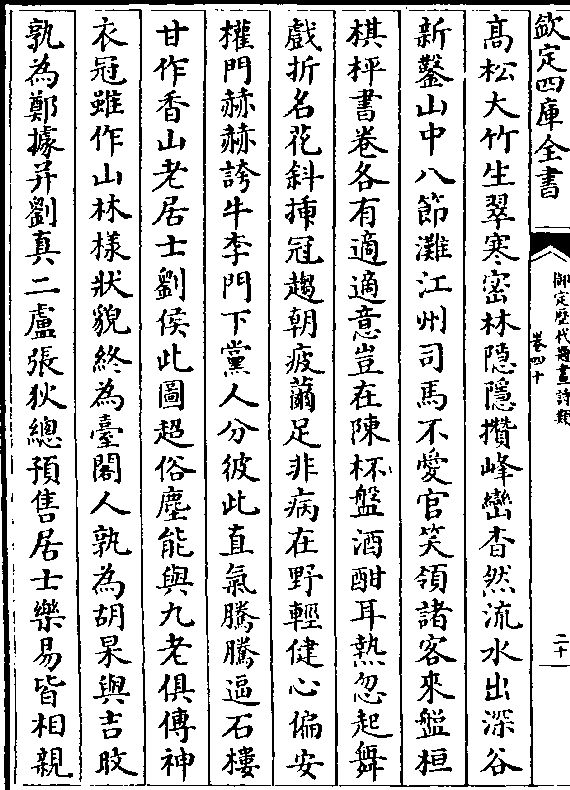 欽定四庫全書
御定歷代題畫詩類
卷四十
二十
高松大竹生翠寒密林隱隱攢峰巒杳然流水出深谷
新鑿山中八節灘江州司馬不愛官笑領諸客來盤桓
棋枰書卷各有適適意豈在陳杯盤酒酣耳熱忽起舞
戲折名花斜揷冠趨朝疲薾足非病在野輕健心偏安
權門赫赫誇牛李門下黨人分彼此直氣騰騰逼石樓
甘作香山老居士劉侯此圖超俗塵能與九老俱傳神
衣冠雖作山林樣狀貌終為臺閣人孰為胡杲與吉旼
孰為鄭據并劉真二盧張狄總預售居士樂易皆相親